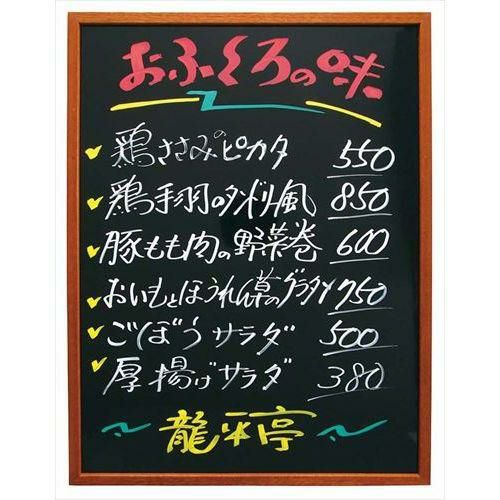 おふくろの味
鶏ささみのピカタ 550
鶏手羽のタンドリー風 850
豚もも肉の野菜巻 600
おいもとほうれん草のグラタン 750
ごぼうサラダ 500
厚揚げサラダ 380
龍平亭